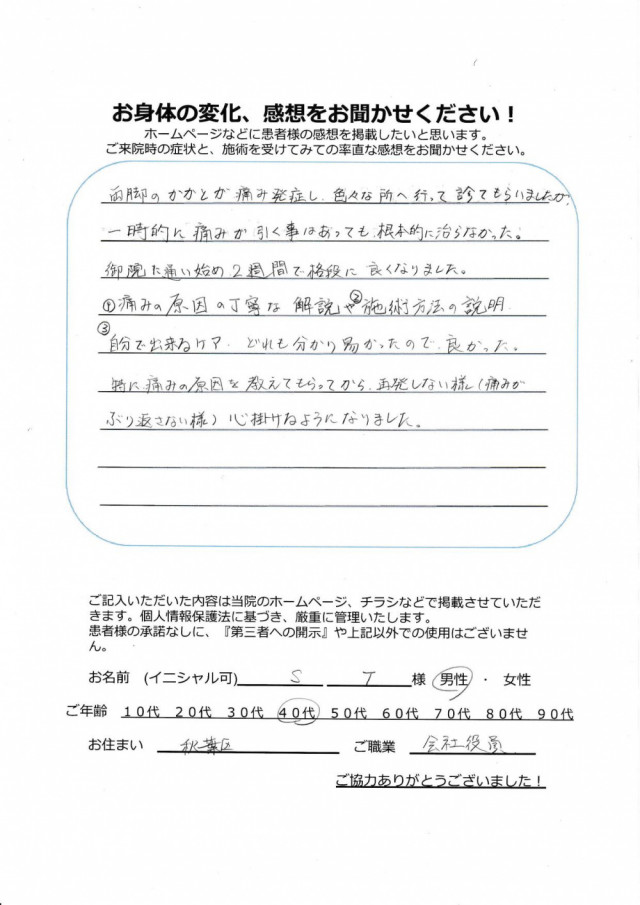 お身体の変化、感想をお聞かせください！
ホームページなどに患者様の感想を掲載したいと思います。
ご来院時の症状と、施術を受けてみての率直な感想をお聞かせください。
両脚のかかとが痛み発症し、色々な所へ行って診てもらいましたが、
一時的に痛みが引く事はあっても、根本的に治らなかった。
御院に通い始め2週間で格段に良くなりました。
①痛みの原因の丁寧な解説や②施術方法の説明
③自分で出来るケア、どれも分かり易かったので、良かった。
特に、痛みの原因を教えてもらってから、再発しない様(痛みが
ぶり返さない様)心掛けるようになりました。
ご記入いただいた内容は当院のホームページ、チラシなどで掲載させていただ
きます。個人情報保護法に基づき、厳重に管理いたします。
患者様の承諾なしに、『第三者への開示』や上記以外での使用はございませ
ん。
お名前 (イニシャル可) S T 様 男性 ・ 女性
ご年齢 10代 20代 30代 40代 50代 60代 70代 80代 90代
お住まい 秋葉区 ご職業 会社役員
ご協力ありがとうございました！